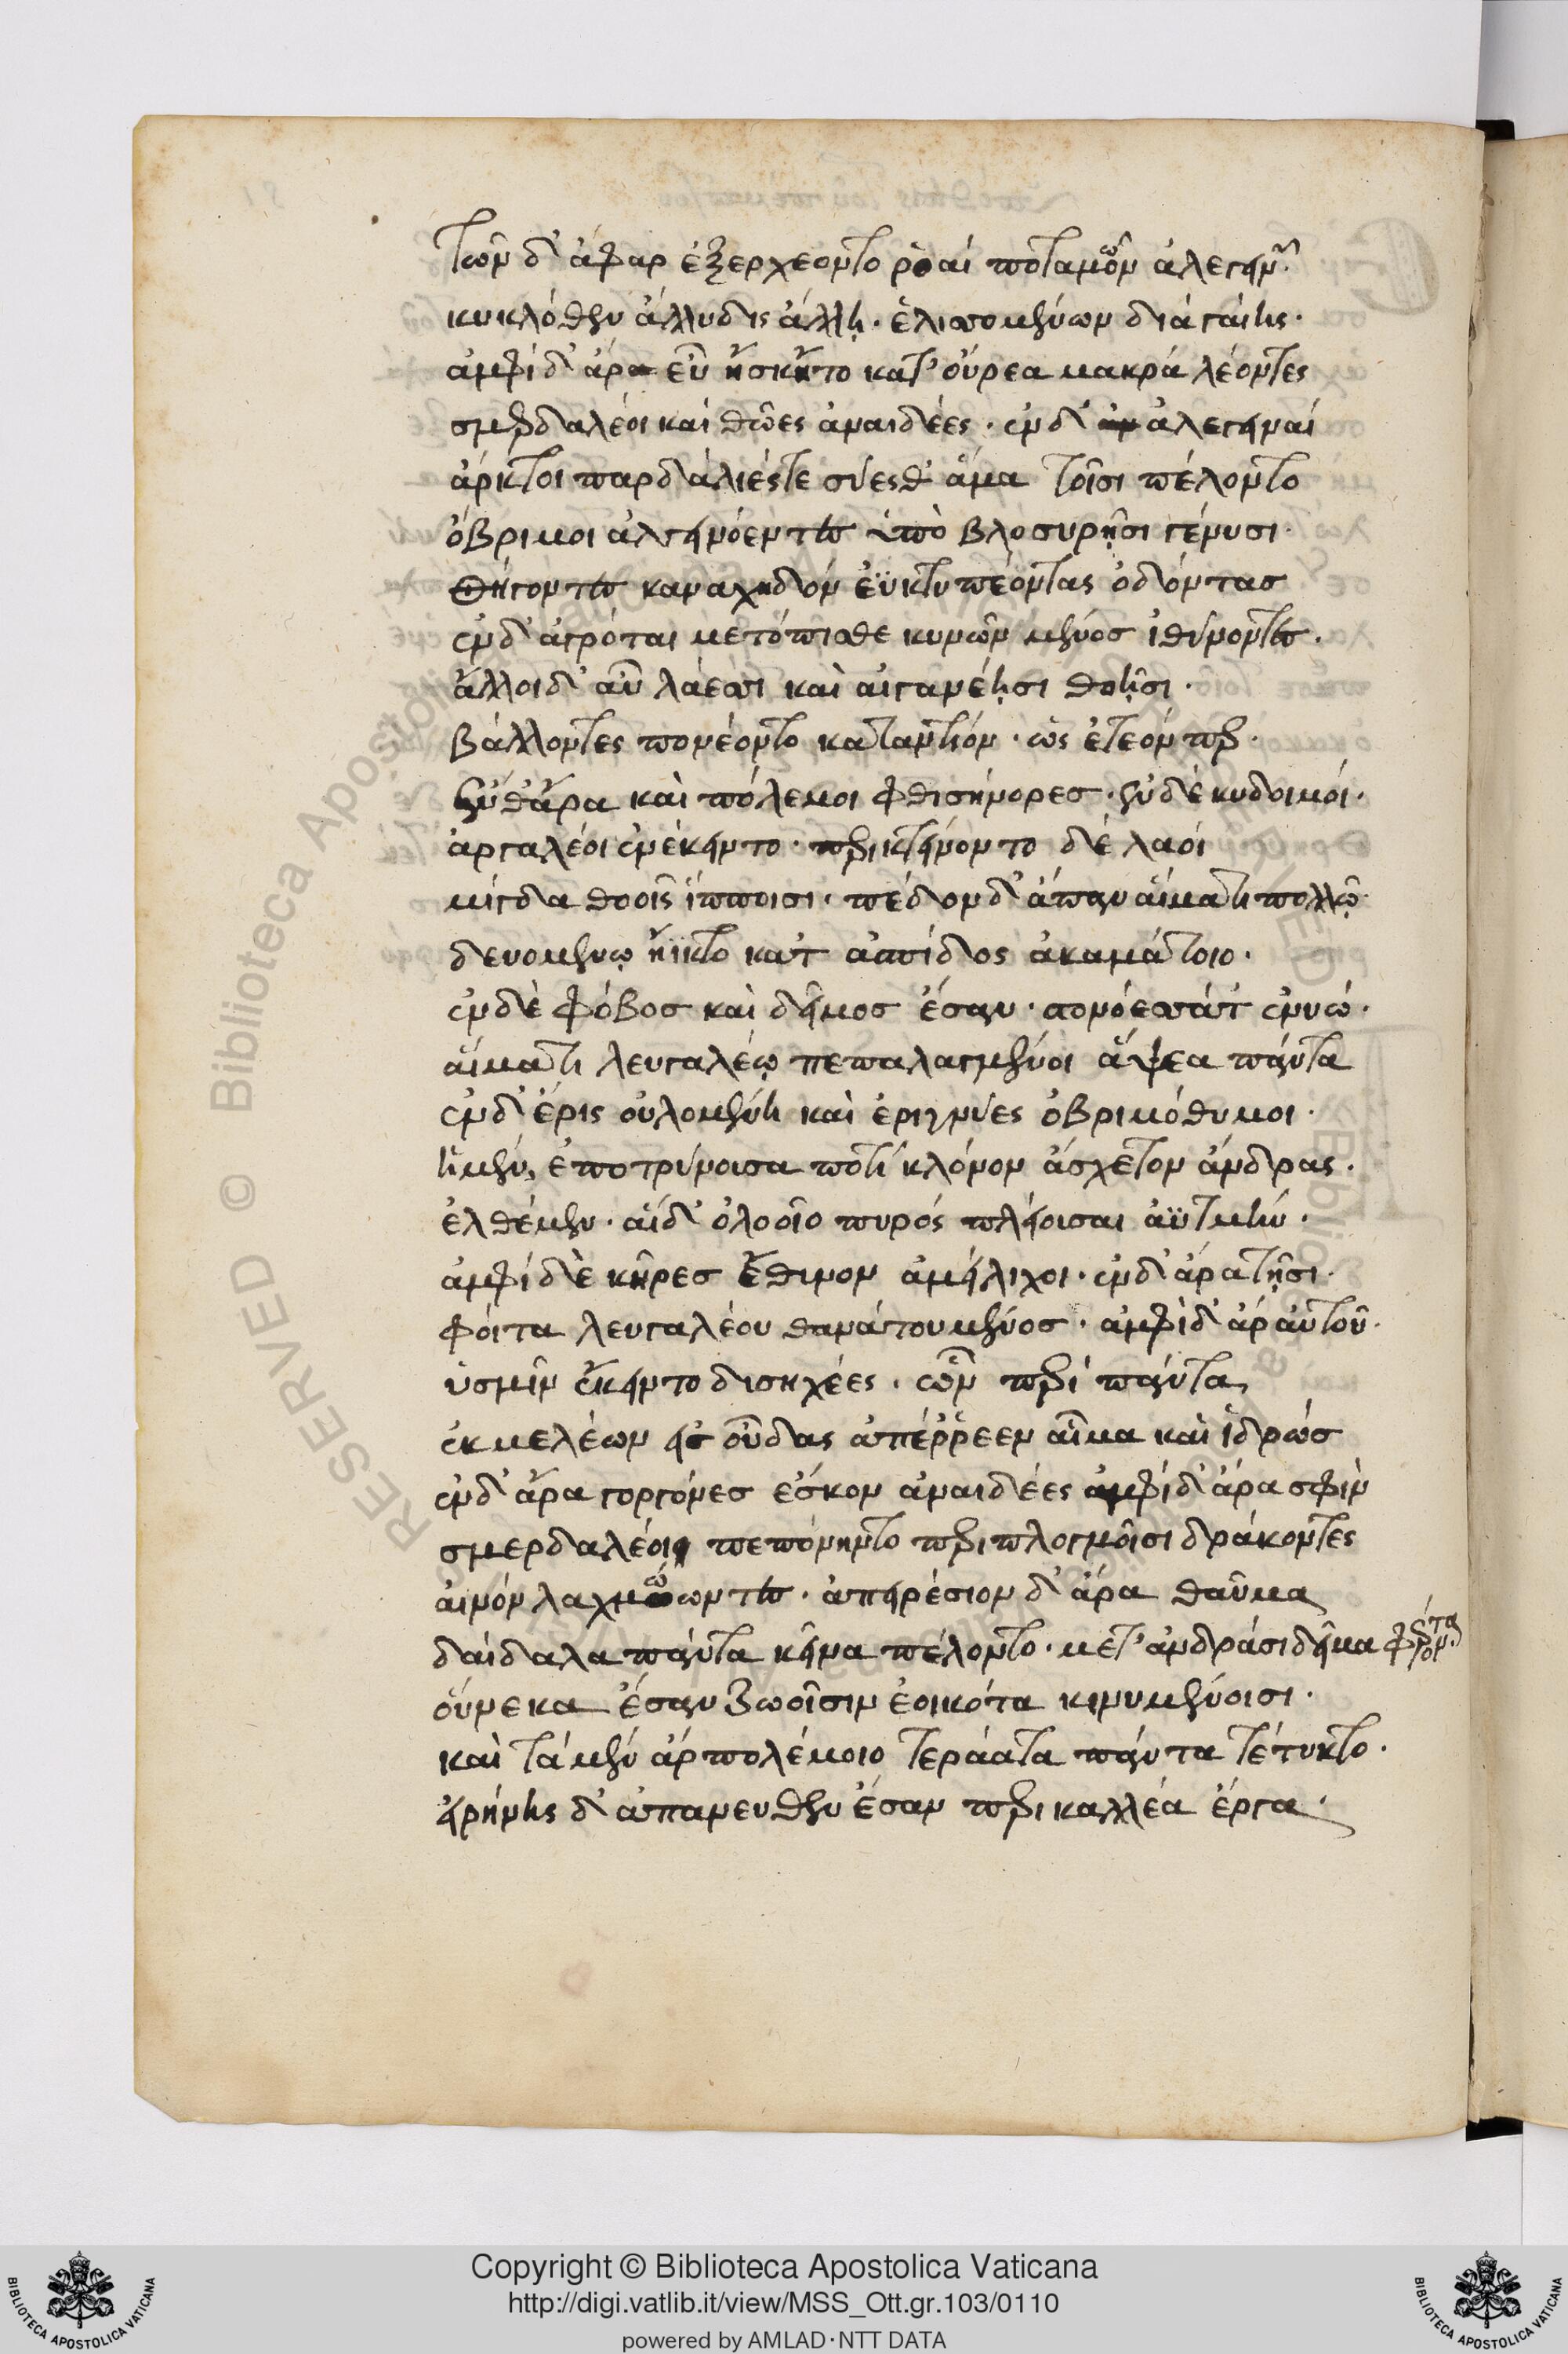 τῶν δ' ἄφαρ ἐξερχέοντο ῥοαὶ ποταμῶν ἀλεγεινῶν
κυκλόθεν ἄλλυδις ἄλλη· ἑλισσομένων διὰ γαίης·
ἀμφὶ δ' ἄρα εὖ ἤσκηντο κατ' οὔρεα μακρὰ λέοντες
σμερδαλέοι καὶ θῶες ἀναιδέες· ἐν δ' ἀλεγειναὶ
ἄρκτοι παρδάλιές τε σύες θ' ἅμα τοῖσι πέλοντο
ὄβριμοι ἀλγεινόεντος ὑπὸ βλοσυρῇσι γένυσι·
θήγοντος καναχηδὸν ἐϋκτυπέοντας ὀδόντας
ἐν δ' ἀγρόται μετόπισθε κυνῶν μένος ἰθύνοντες·
ἄλλοι δ' αὖ λάεσσι καὶ αἰγανέῃσι θοῇσι·
βάλλοντες πονέοντο καταντίον· ὡς ἐτεόν περ·
ἐν θ' ἄρα καὶ πόλεμοι φθισήνορες· ἐν δὲ κυδοιμοί·
ἀργαλέοι ἐνέκειντο· περικτείνοντο δὲ λαοί
μίγδα θοοῖς ἵπποισι· πέδον δ' ἅπαν αἵματι πολλῷ·
δευομένῳ ἤϊκτο κατ' ἀσπίδος ἀκαμάτοιο·
ἐν δὲ φόβος καὶ δεῖμος ἔσαν· στονόεσσά τ' ἐνυώ·
αἵματι λευγαλέῳ πεπαλαγμένοι ἅψεα πάντα
ἐν δ' ἔρις οὐλομένη καὶ ἐριννύες ὀβριμόθυμοι·
ἡ μὲν ἐποτρύνοισα ποτὶ κλόνον ἄσχετον ἄνδρας·
ἐλθέμεν· αἱ δ' ὀλοοῖο πυρός πλείοισαι ἀϋτμήν·
ἀμφὶ δὲ κῆρες ἔθινον ἀμείλιχοι· ἐν δ' ἄρα τῇσι·
φοίτα λευγαλέου θανάτου μένος· ἀμφὶ δ' ἄρ αὐτοῦ·
ὑσμῖν ἔκειντο δισηχέες· ὧν περὶ πάντα
ἐκ μελέων εἰς οὖδας ἀπέρρεεν αἷμα καὶ ἱδρώς
ἐν δ' ἄρα γοργόνες ἔσκον ἀναιδέες ἀμφὶ δ' ἄρα σφιν
σμερδαλέοι πεπόνηντο περιπλοχμοῖσι δράκοντες
αἰνὸν λαχμώωντες· ἀπειρέσιον δ' ἄρα θαῦμα
δαίδαλα πάντα κεῖνα πέλοντο· μετ' ἀνδράσι δεῖμα φέροντα
οὕνεκα ἔσαν ζωοῖσιν ἐοικότα κινυμένοισι·
καὶ τὰ μὲν ἂρ πολέμοιο τεράατα πάντα τέτυκτο·
εἰρήνης δ' ἀπάνευθεν ἔσαν περικαλλέα ἔργα·
Copyright © Biblioteca Apostolica Vaticana
http://digi.vatlib.it/view/MSS_Ott.gr.103/0110
powered by AMLAD·NTT DATA